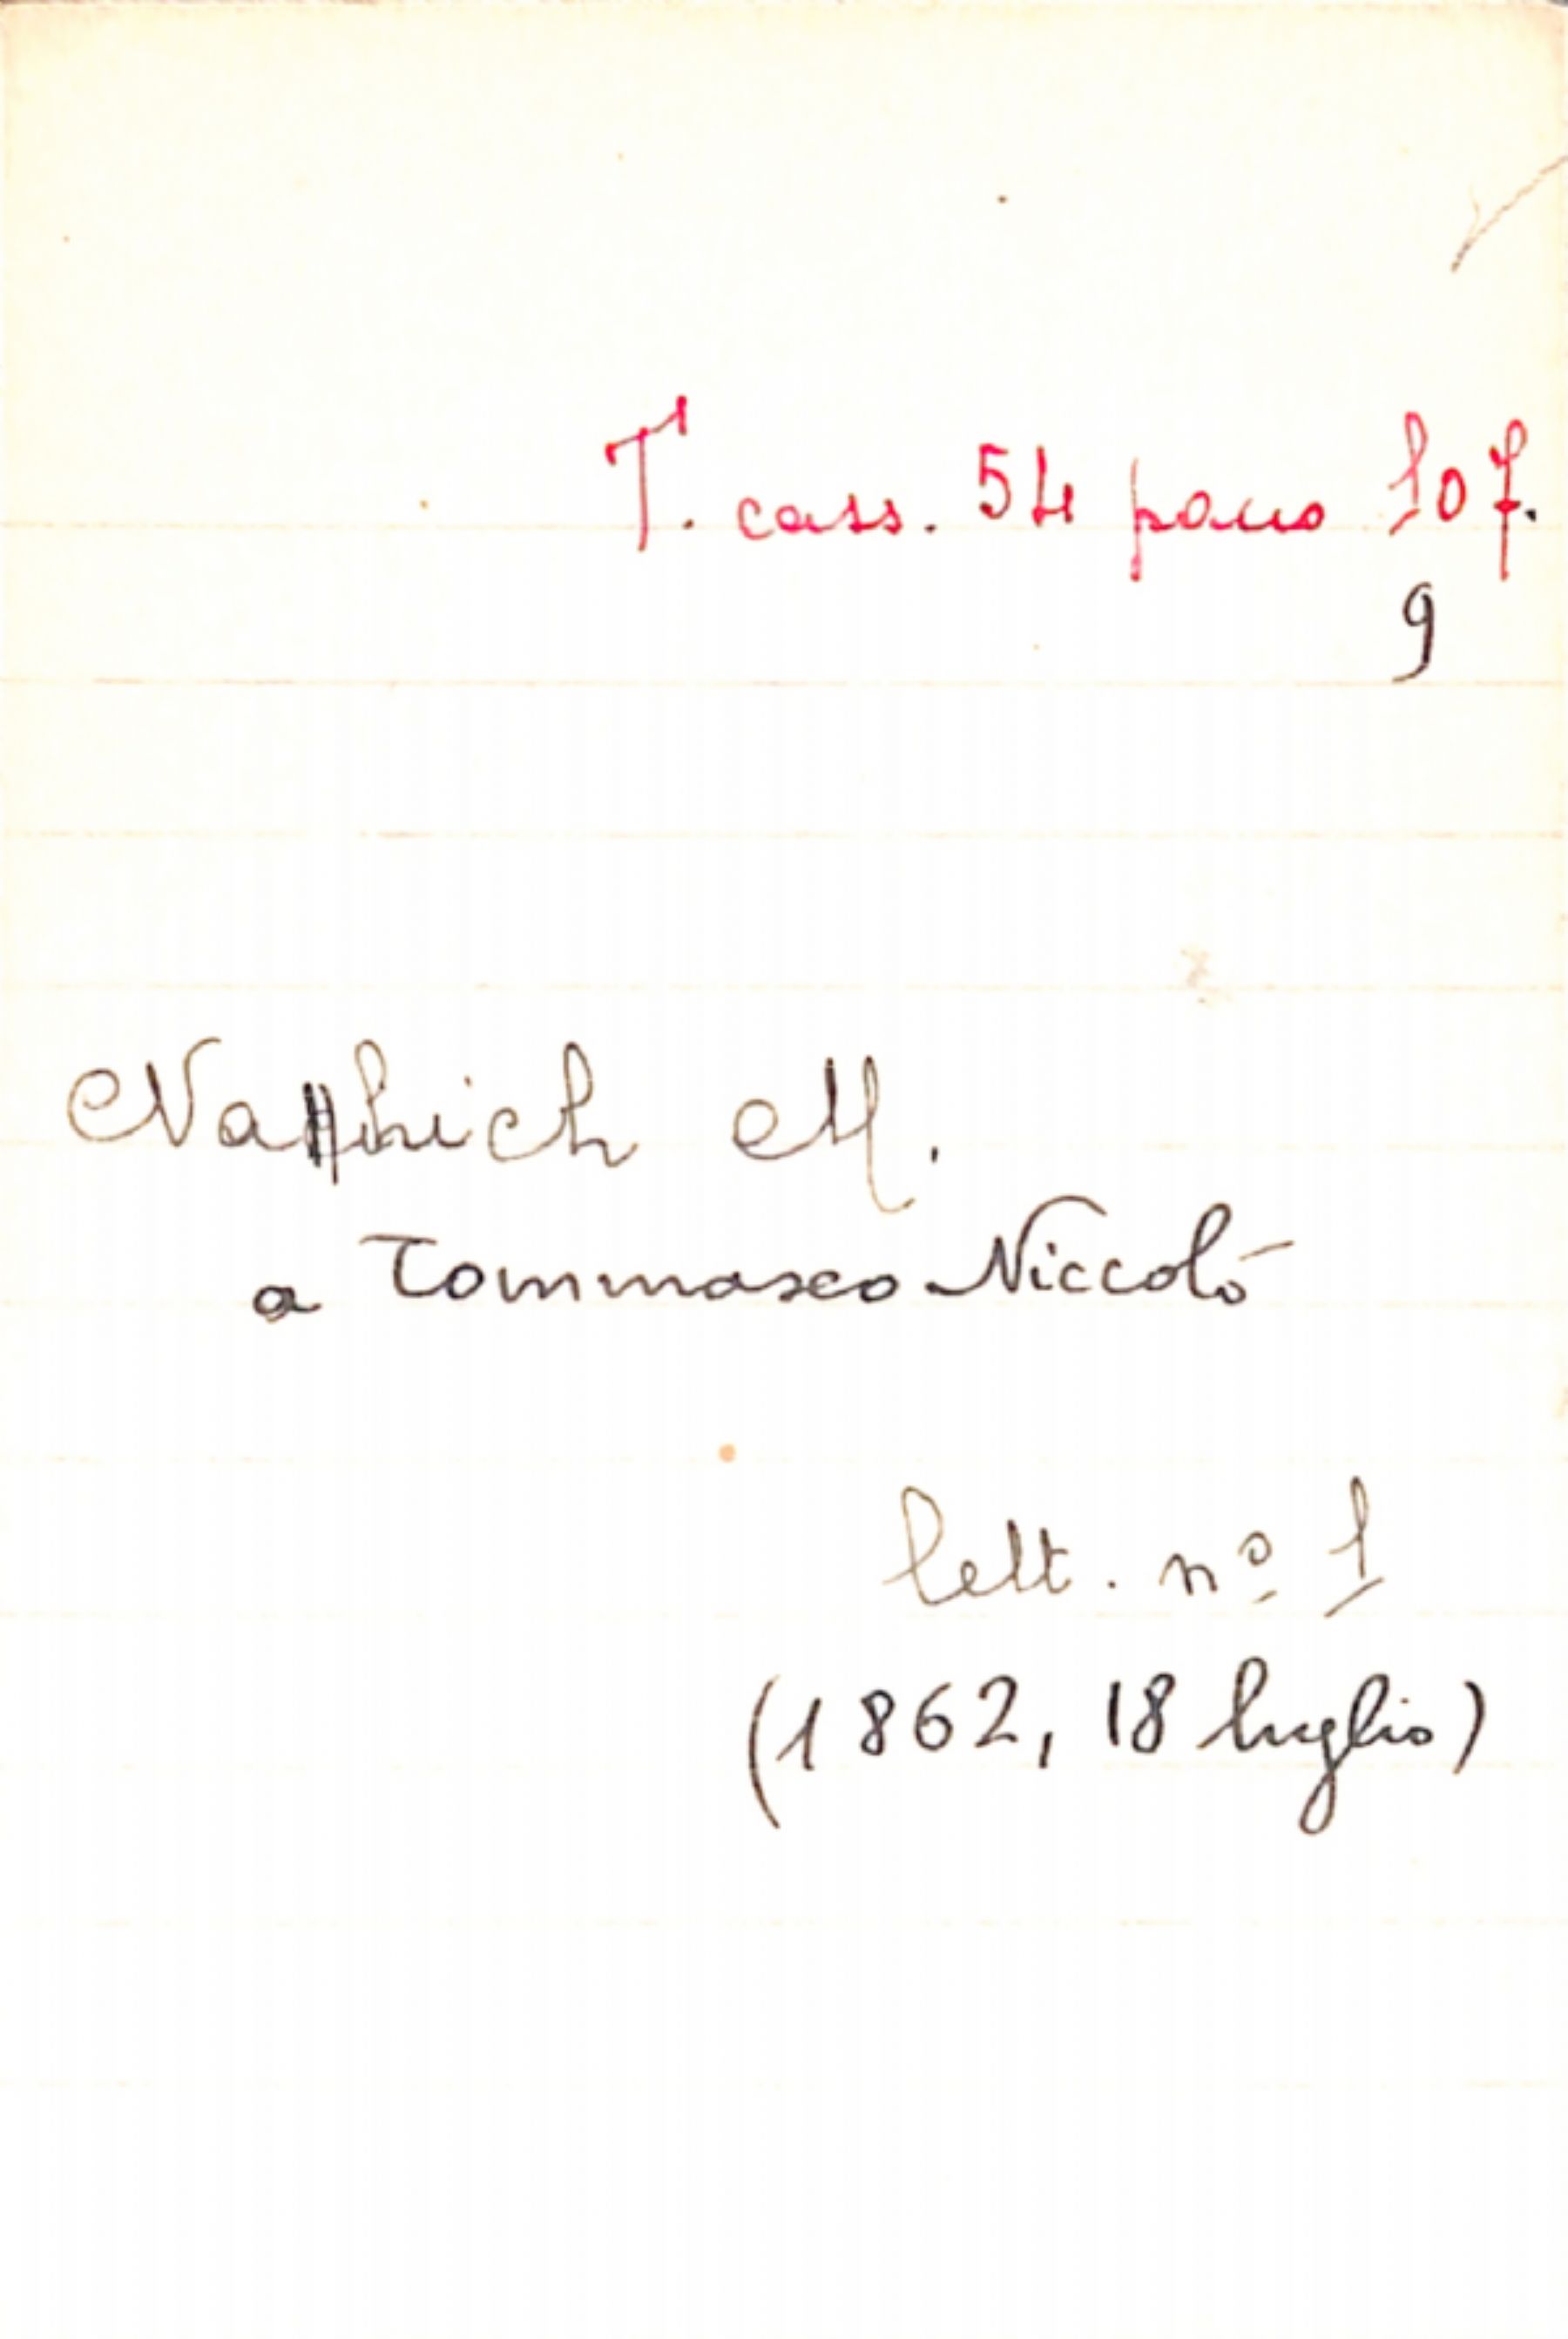 T. cass. 54 panno 107.
9
M.
a Tommaseo Niccolò
lett. nº 1
(1862, 18 luglio)